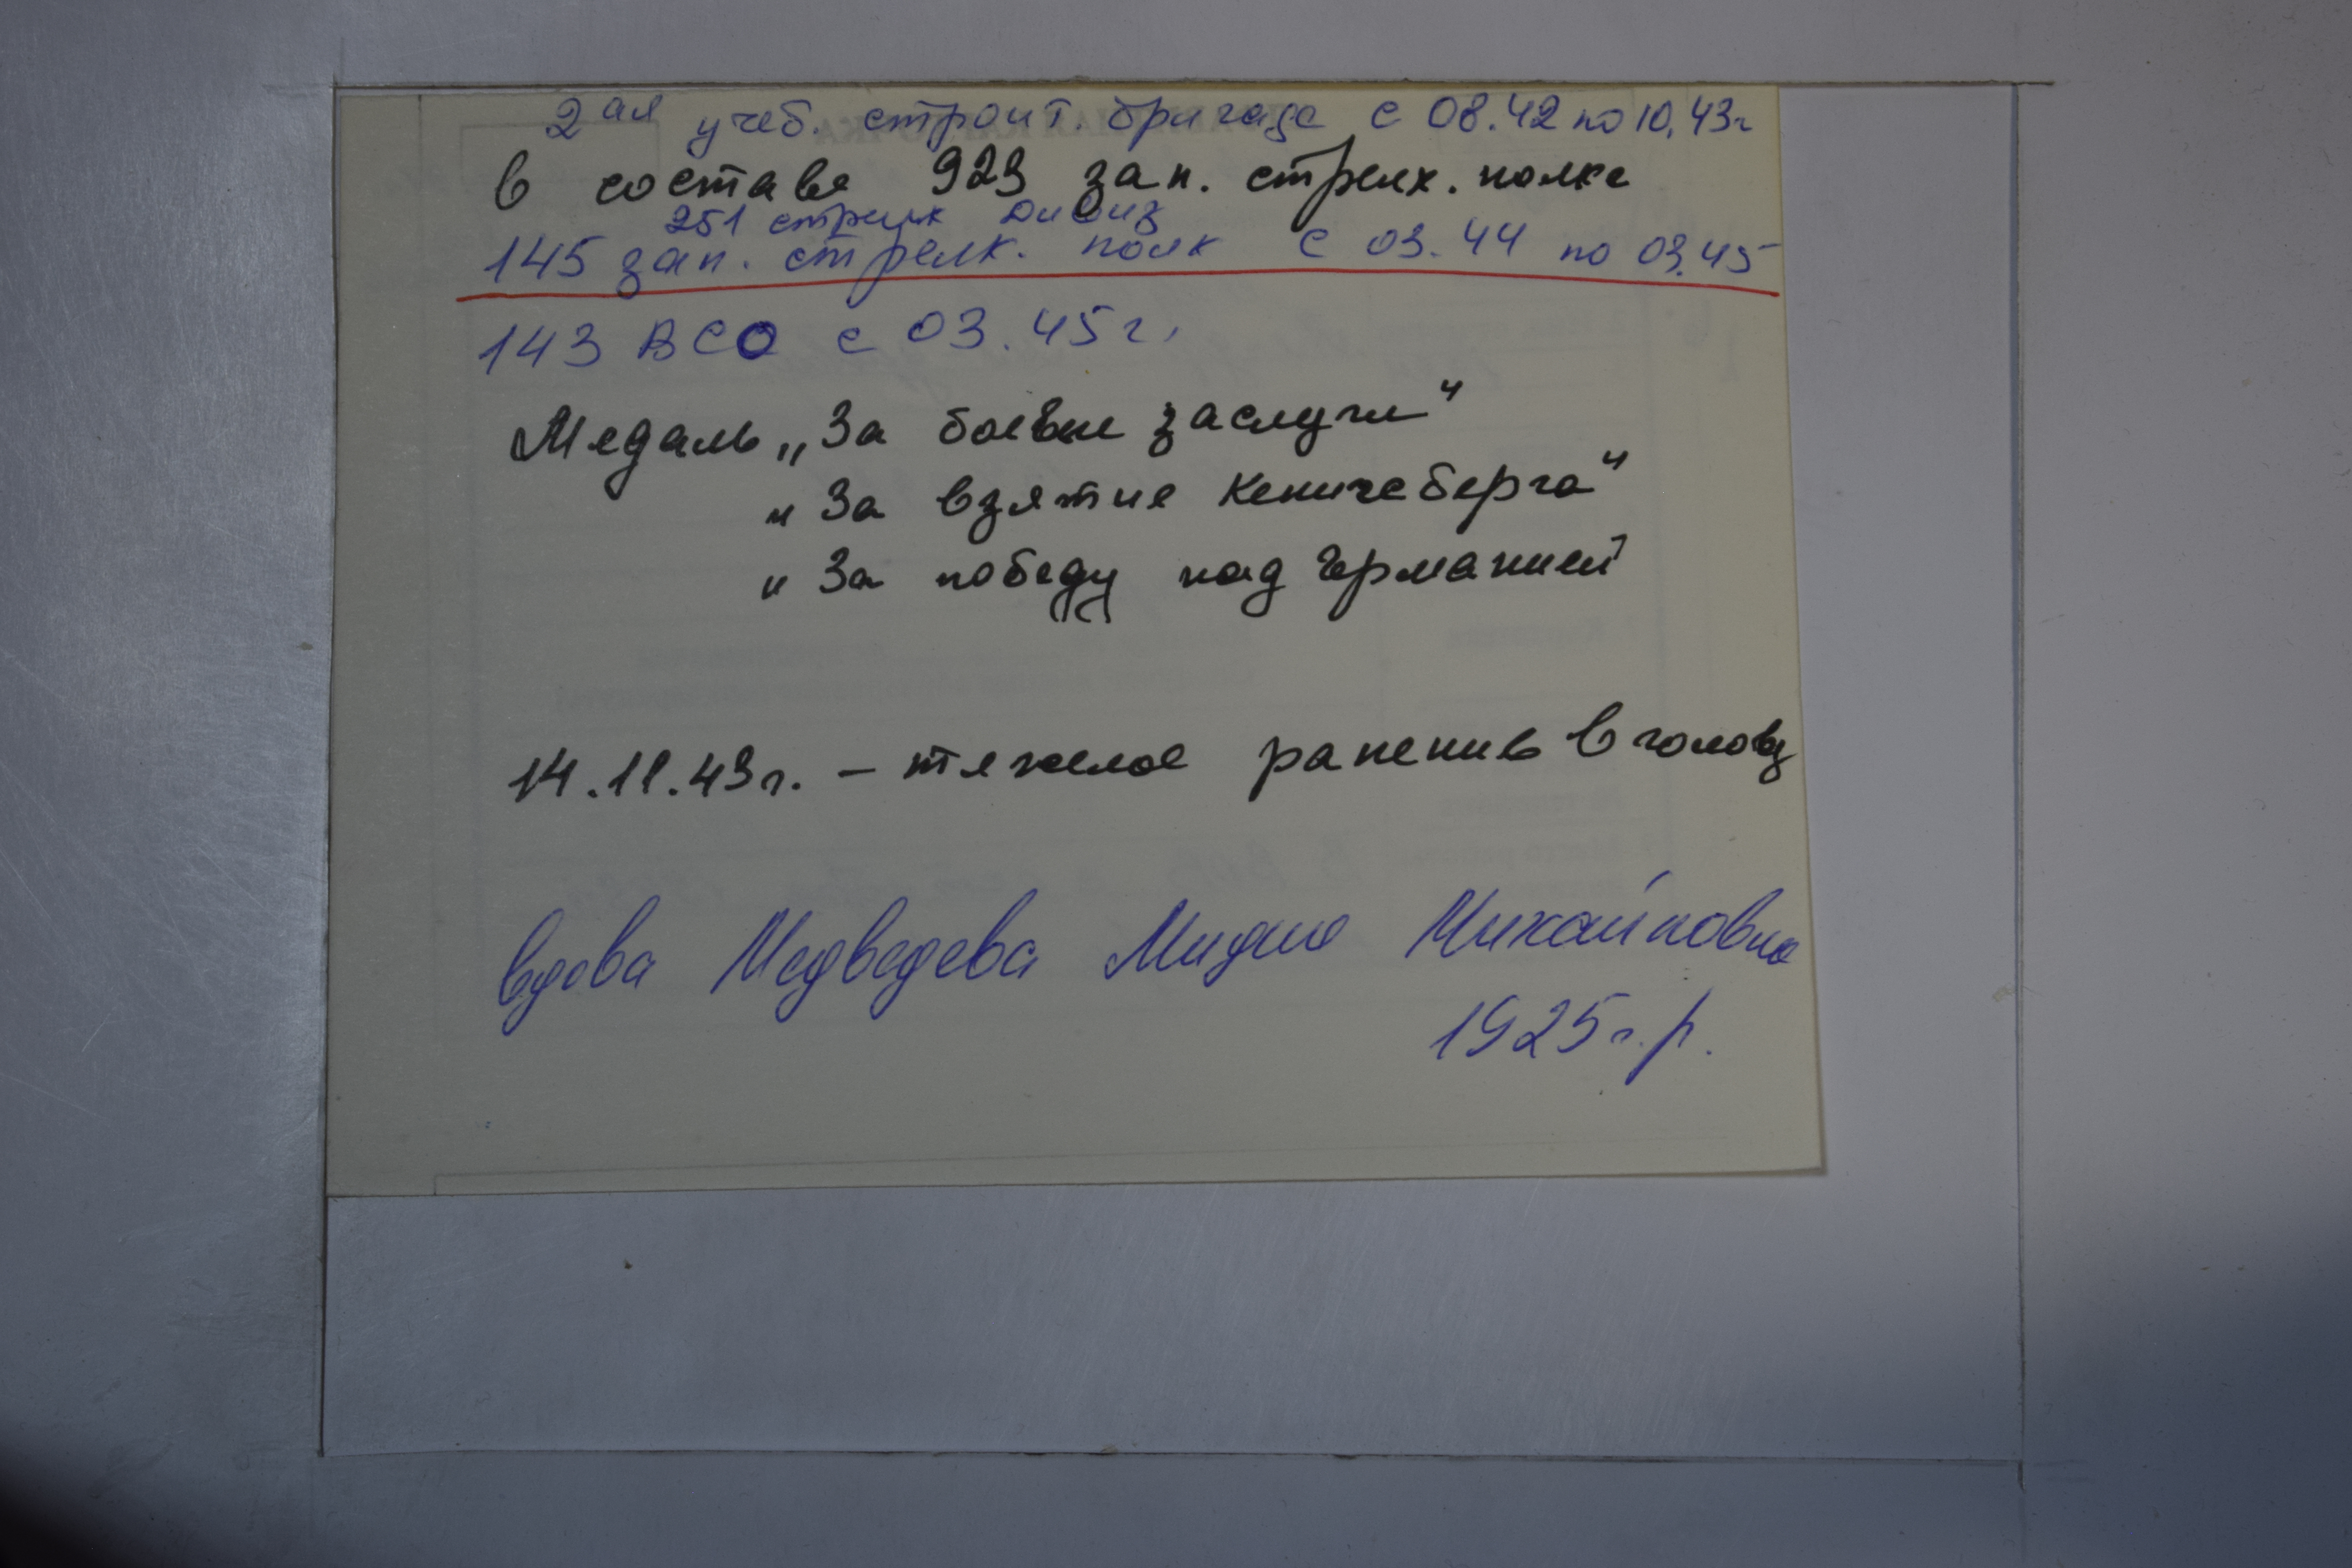 2ая учеб. строит. бригада с 08.42 по 10.43г
в составе 923 зап. стрелк. полка
251 стрелк дивиз
145 зап. стрелк. полк с 03.44 по 03.45
143 ВСО с 03.45г.
Медаль „За боевые заслуги"
" За взятие Кенигсберга"
" За победу над Германией
14.11.43г. – тяжелое ранение в голову
вдова Медведева Михайловна
1925г.р.